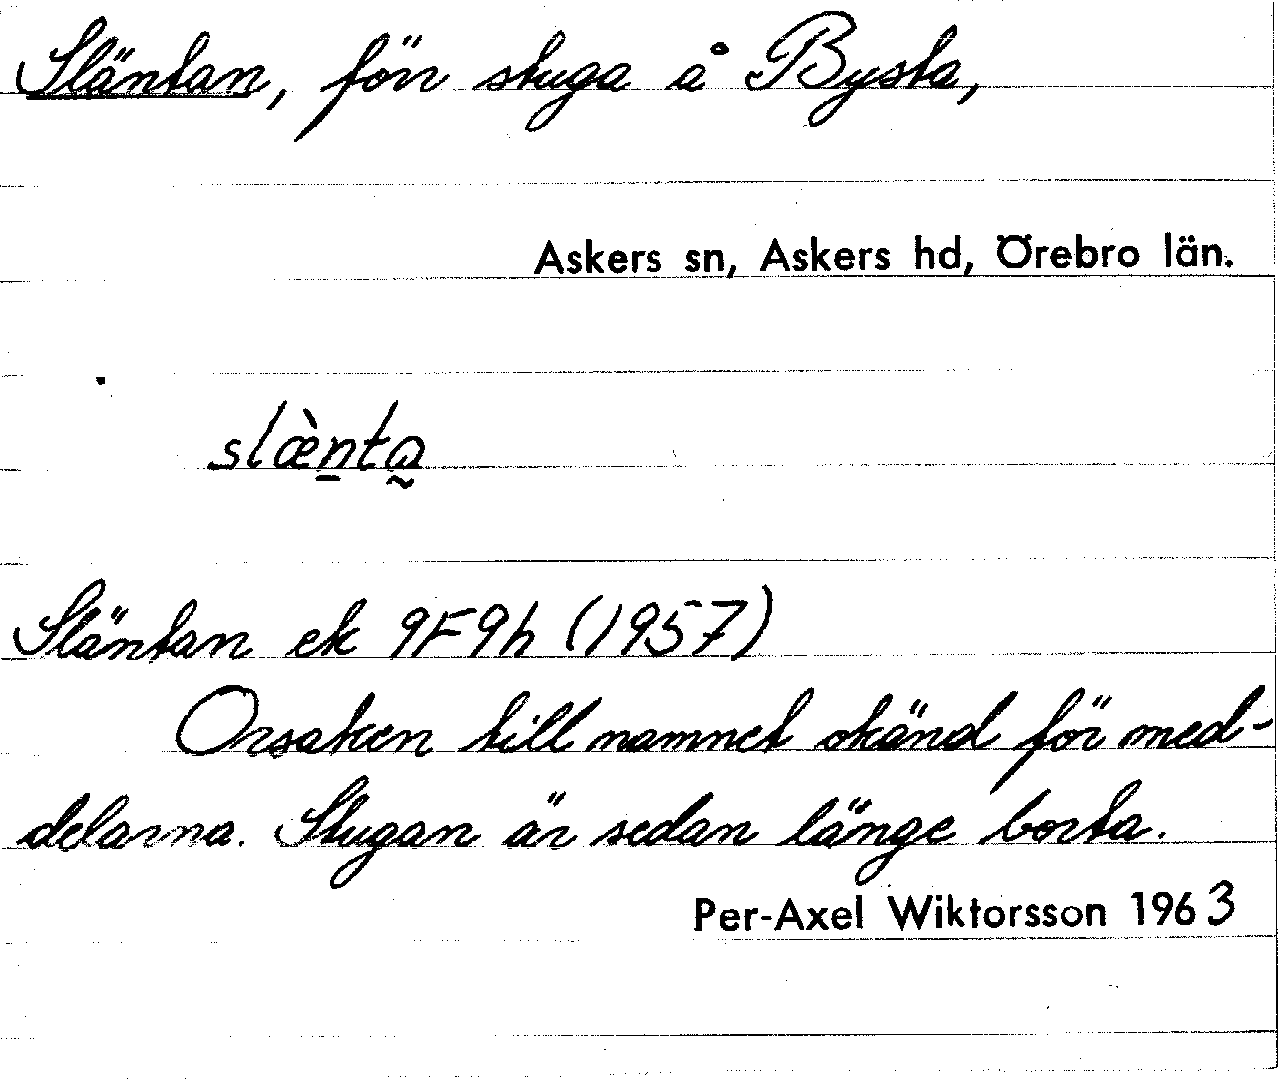 Släntan, förr stuga å Bysta,
Askers sn, Askers hd, Örebro län.
slæ̀n̠ta̰
Släntan ek 9F9h (1957)
Orsaken till namnet okänd för med-
delarna. Stugan är sedan länge borta.
Per-Axel Wiktorsson 1963